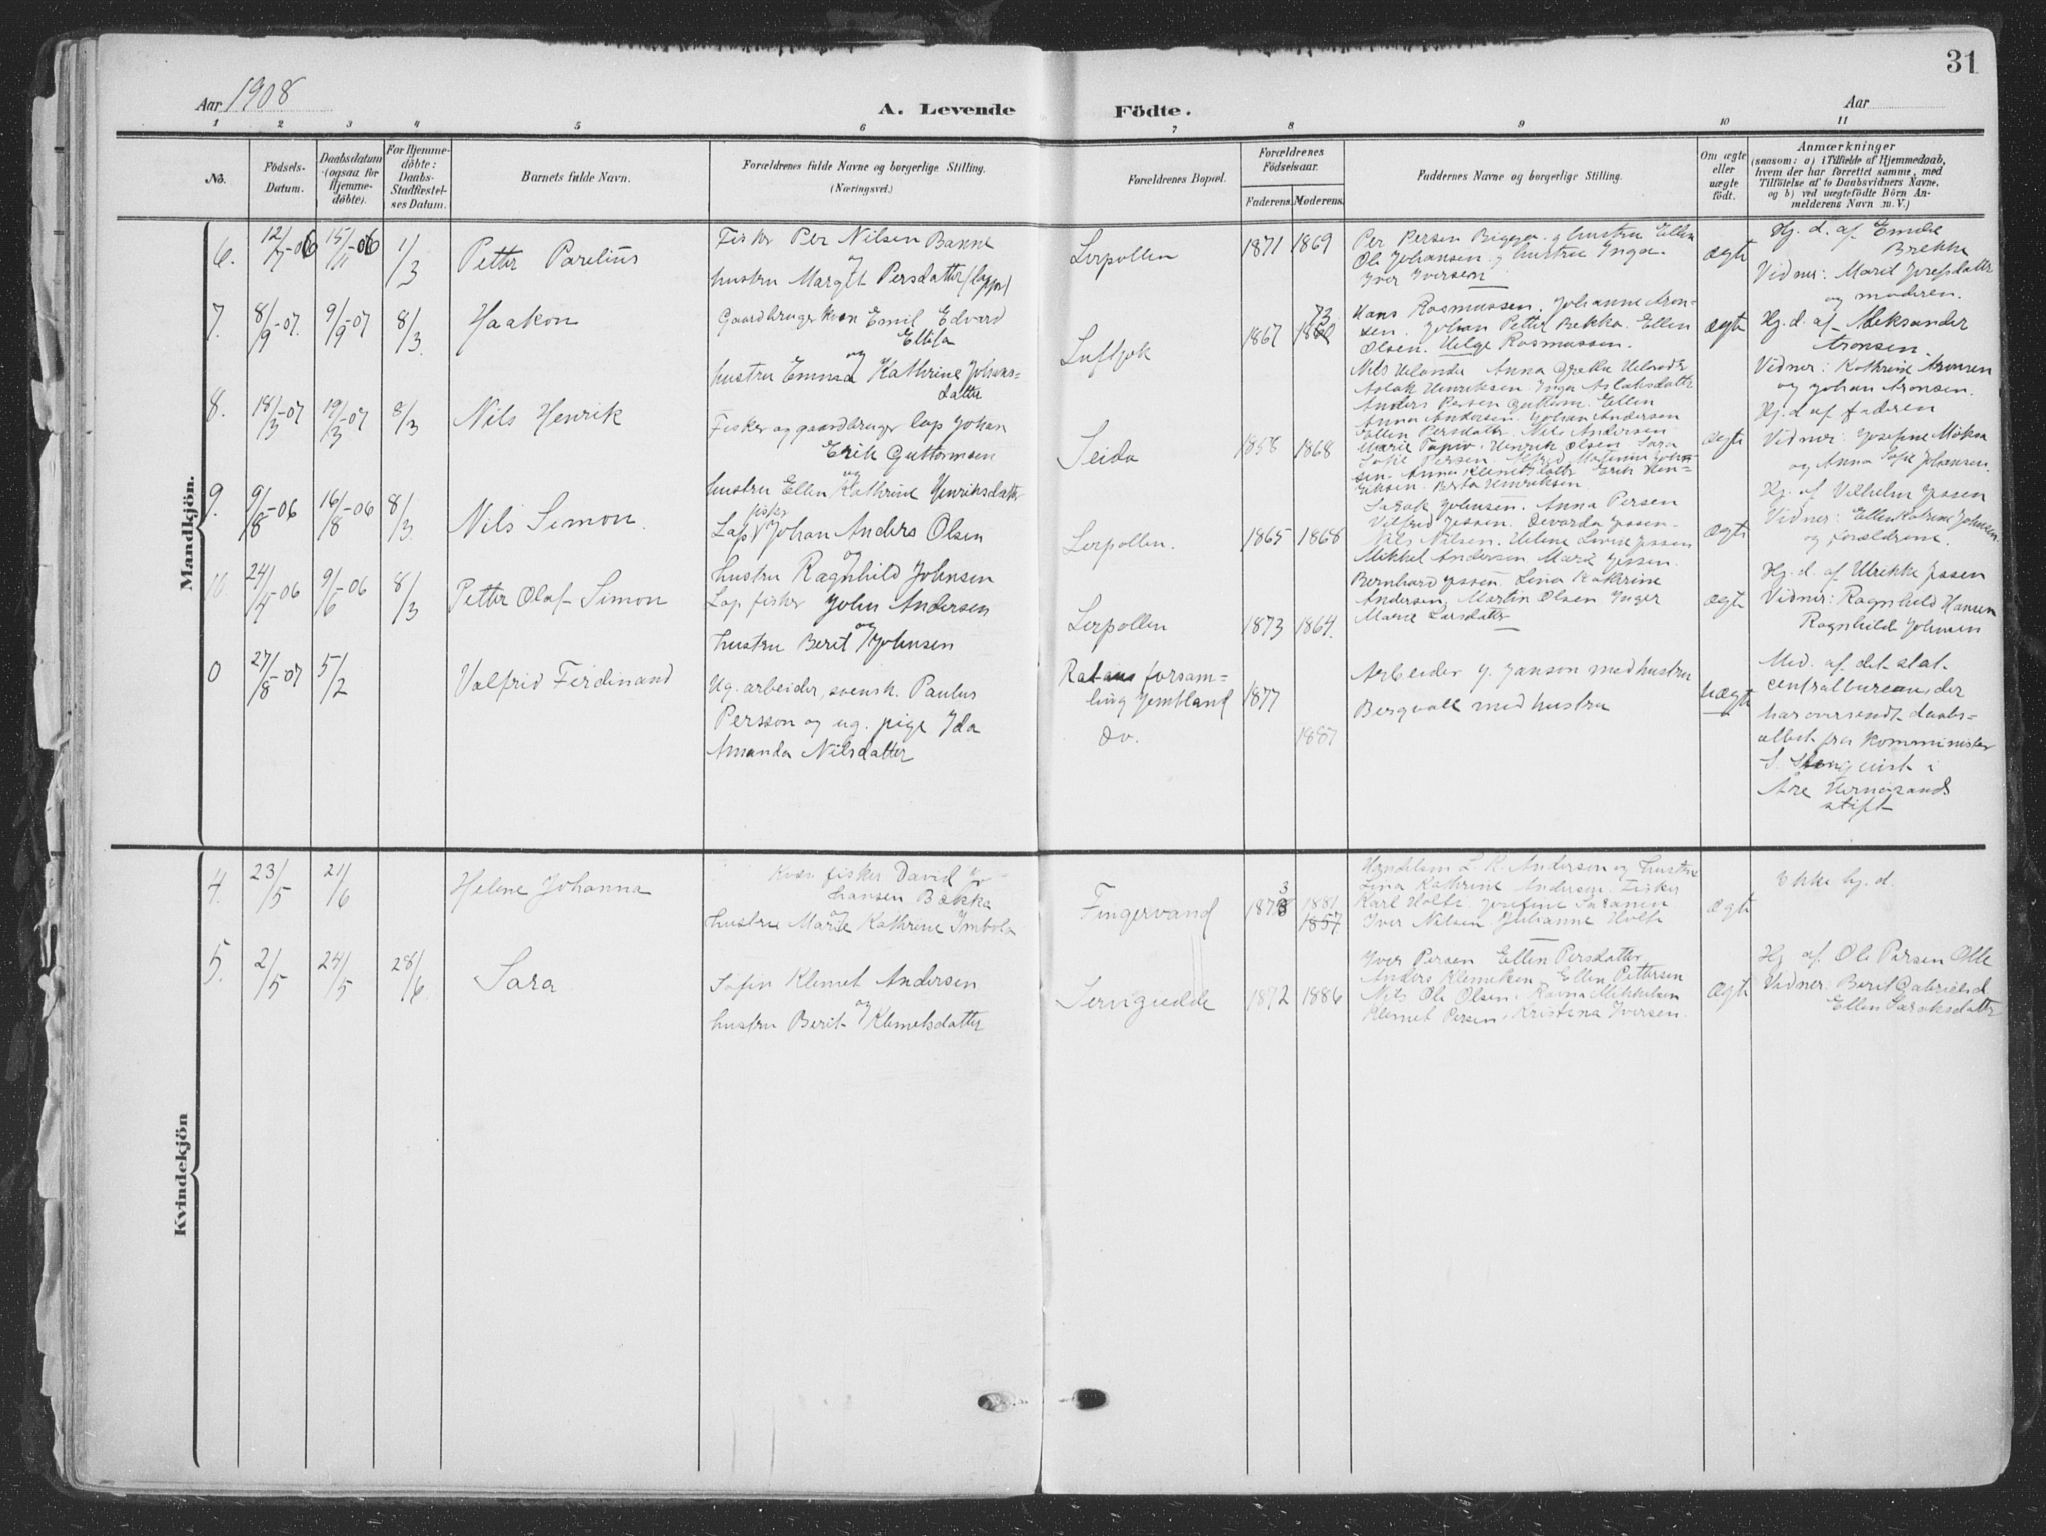 31
Aar 1908
A. Levende
Födte.
Aar
1 2 3 4 5 6 7 8 9 10 11
No.
Födsels-
Datum.
Daabsdatum
(ogsaa for
Hjemme-
döbte).
For Hjemme-
döbte:
Daabs-
Stadfæstel-
ses Datum.
Barnets fulde Navn.
Forældrenes fulde Navne og borgerlige Stilling.
(Næringsvei.)
Forældrenes Bopæl.
Forældrenes
Födselsaar.
Faderens. Moderens.
Faddernes Navne og borgerlige Stilling.
Om ægte
eller
uægte
födt.
Anmærkninger
(saasom: a) i Tilfælde af Hjemmedaab,
hvem der har forrettet samme, med
Tilföielse af to Daabsvidners Navne,
og b) ved uægtefödte Börn An-
melderens Navn m. V.)
Mandkjön.
6. 12/7-06 15/7-06 1/3 Petter Parelius
Fisker Per Nilsen Banne
og
hustru Margit Persdatter (lapper)
Lerpollen 1871 1869
Per Persen Bigga og hustru Ellen
Ole Johansen og hustru Inga
Iver Iversen
ægte
Hj. d. af Emilie
Brekke
Vidner: Marit Josefsdatter
og moderen.
7. 8/9-07. 9/9-07 8/3. Haakon
Gaardbruger kvæn Emil Edvard
Ellila
og
hustru Emma Kathrine Johans-
datter
Luftjok 1867 73
Hans Rasmussen. Johanne Aron-
sen. Johan Petter Bekka. Ellen
Olsen. Helge Rasmussen.
ægte
Hj. d. af Aleksander
Aronsen.
Vidner: Kathrine Aronsen
og Johan Aronsen.
8. 18/3-07 19/3-07 8/3 Nils Henrik
Fisker og gaardbruger lap Johan
Erik Guttormsen
og
hustru Ellen Kathrine Henriksdatter
Seida 1858 1868
Aslak Henriksen. Inga Aslaksdatter
Anders Persen Guttorm. Ellen
Anna Andersen. Johan Andersen
Ellen Persdatter. Nils Andersen
Henrik Olsen. Sara
ægte
Hj. d. af faderen
Vidner: Josefine
og Anna Sofie Johansen.
9. 9/8-06 16/8-06 8/3. Nils Simon.
fisker
Lap Johan Anders Olsen
og
hustru Ragnhild Johnsen
Lerpollen. 1865 1868
Anna Persen
Nils Nilsen. Helene Lovise Jessen
Mikkel Andersen Marie Jessen.
ægte
Hj. af Vilhelm Jessen
Vidner: Ellen Katrine Johnsen
og forældrene.
10 24/4-06 9/6-06 8/3 Petter Olaf Simon
Lap fisker John Andersen
og
hustru Berit Johnsen
Lerpollen 1873 1864.
Bernhard Jessen. Lina Kathrine
Andersen. Martin Olsen Inger
Marie Larsdatter
ægte
Hj. d. af Ulrikke Jessen
Vidner: Ragnhild Hansen
Ragnhild Johnsen
0 27/8-07 5/2 Valfrid Ferdinand
Ug. arbeider, svensk. Paulus
Persson og ug. pige Ida
Amanda Nilsdatter
forsam-
ling Jemtland
do.
1877
1887
Arbeider J. Janson med hustru
Bergvall med hustru
uægte
Med. af det stat.
centralbureau, der
har oversendt daabs-
attest fra Komminister
S. Stenquist i
Åre Hernøsands
stift
Kvindekjön
4. 23/5 21/6 Helene Johanna
Kvæn fisker David Jo-
hansen Bekka
hustru Marie Kathrine Imbola
Fingervand 1873 1881
1857
Handelsm. L. K. Andersen og hustru
Lina Kathrine Andersen. Fisker
Karl Holti. Josefine
Iver Nilsen Julianne Holti
ægte
Ikke hj. d.
5. 2/5 24/5 28/6. Sara
Klemet Andersen
og
hustru Berit Klemetsdatter
1872 1886
Iver Persen Ellen Persdatter
Anders Klemetsen Ellen Pettersen
Nils Ole Olsen. Ravna Mikkelsen
Klemet Persen. Kristina Iversen.
ægte
Hj. af Ole Persen
Vidner: Berit Gabrielsd.
Ellen